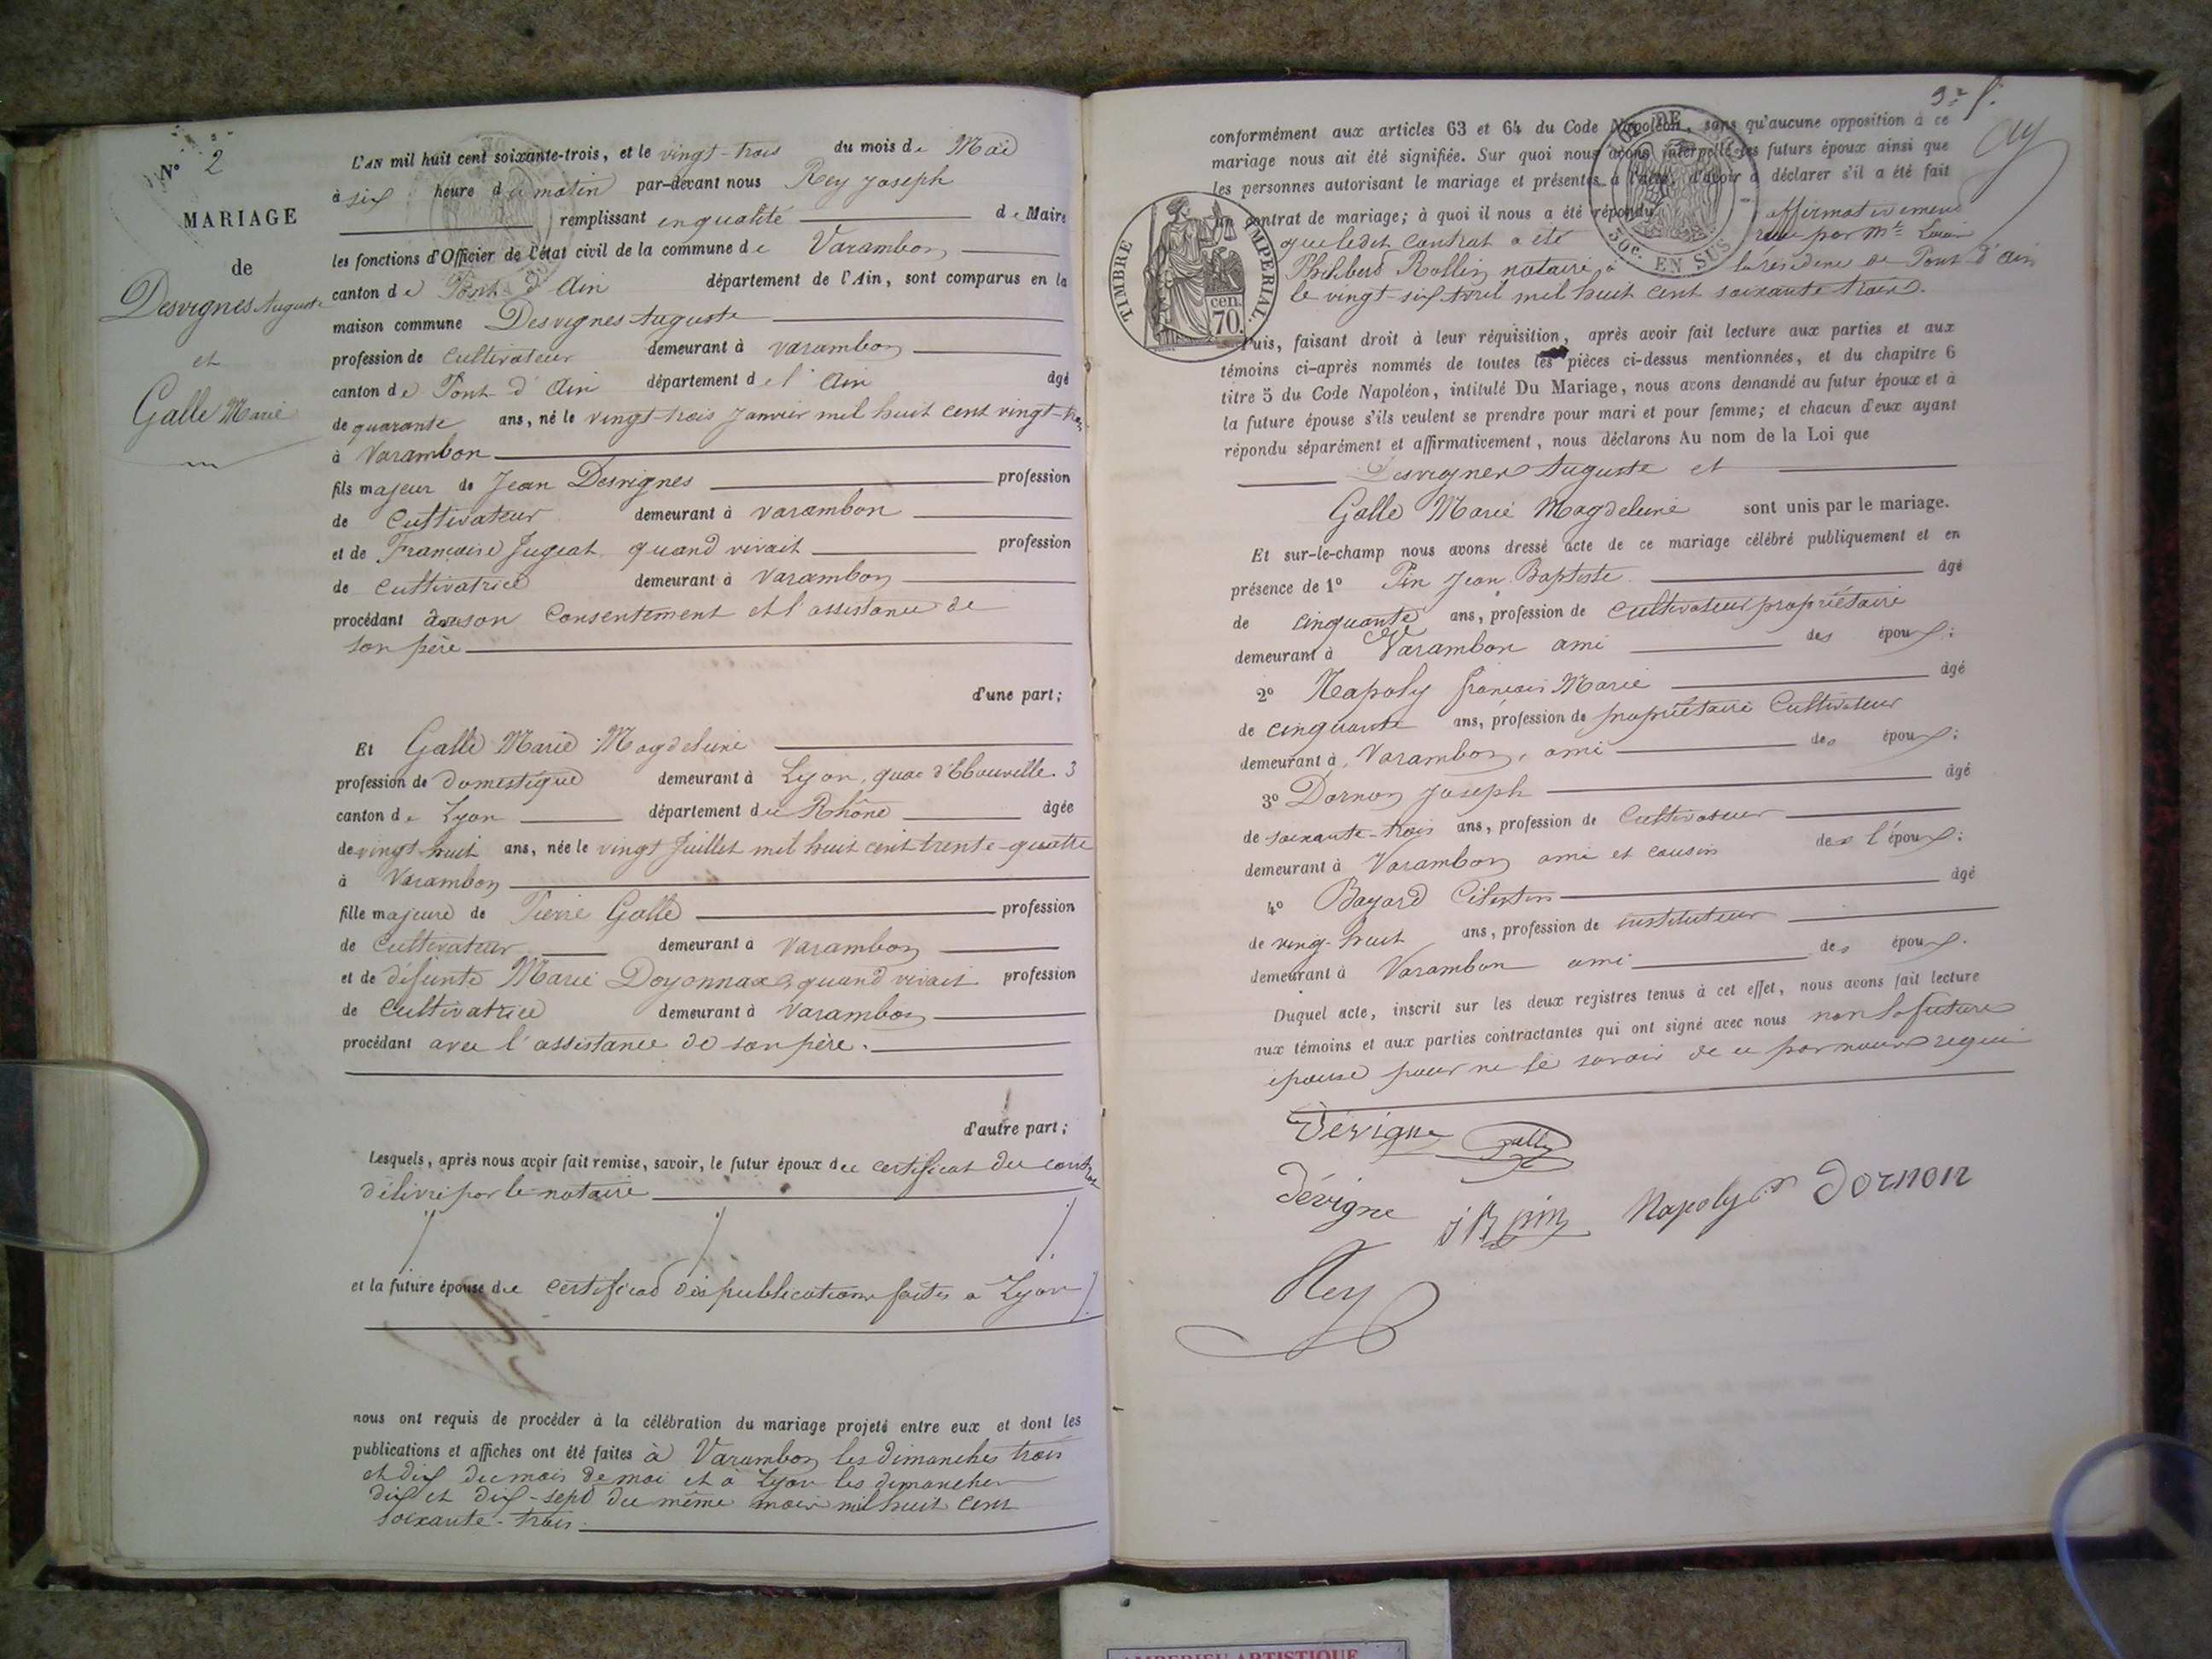 N° 2
MARIAGE
de
Desvignes Auguste
et
Galle Marie
L'AN mil huit cent soixante-trois, et le vingt-trois du mois de Mai
à six heure du matin par-devant nous Rey Joseph
remplissant en qualité de Maire
les fonctions d'Officier de l'état civil de la commune de Varambon
canton de Pont d'Ain département de l'Ain, sont comparus en la
maison commune Desvignes Auguste
profession de cultivateur demeurant à Varambon
canton de Pont d'Ain département de l'Ain âgé
de quarante ans, né le vingt-trois Janvier mil huit cent vingt-trois
à Varambon
fils majeur de Jean Desvignes profession
de Cultivateur demeurant à Varambon
et de Françoise Jugeat quand vivait profession
de cultivatrice demeurant à Varambon
procédant de son consentement et l'assistance de
son père
d'une part;
Et Galle Marie Magdeleine
profession de domestique demeurant à Lyon, quai 3
canton de Lyon département du Rhône âgée
de vingt-huit ans, née le vingt Juillet mil huit cent trente-quatre
à Varambon
fille majeure de Pierre Galle profession
de Cultivateur demeurant à Varambon
et de défunte Marie Doyonnax quand vivait profession
de cultivatrice demeurant à Varambon
procédant avec l'assistance de son père.
d'autre part;
Lesquels, après nous avoir fait remise, savoir, le futur époux du certificat du contrat
délivré par le notaire
et la future épouse du certificat des publications faites a Lyon
nous ont requis de procéder à la célébration du mariage projeté entre eux et dont les
publications et affiches ont été faites à Varambon les dimanches trois
et dix du mois de mai et à Lyon les dimanches
dix et dix-sept du même mois mil huit cent
soixante-trois.
conformément aux articles 63 et 64 du Code Napoléon, sans qu'aucune opposition à ce
mariage nous ait été signifiée. Sur quoi nous avons interpellé les futurs époux ainsi que
les personnes autorisant le mariage et présentes à l'acte, d'avoir à déclarer s'il a été fait
un contrat de mariage; à quoi il nous a été répondu affirmativement
que ledit contrat a été reçu par Mtre
Philibert Rollin notaire à la résidence de Pont d'Ain
le vingt-six avril mil huit cent soixante trois.
TIMBRE IMPERIAL
cen.
70.
DE
50c. EN SUS
Puis, faisant droit à leur réquisition, après avoir fait lecture aux parties et aux
témoins ci-après nommés de toutes les pièces ci-dessus mentionnées, et du chapitre 6
titre 5 du Code Napoléon, intitulé Du Mariage, nous avons demandé au futur époux et à
la future épouse s'ils veulent se prendre pour mari et pour femme; et chacun d'eux ayant
répondu séparément et affirmativement, nous déclarons Au nom de la Loi que
Desvignes Auguste et
Galle Marie Magdeleine sont unis par le mariage.
Et sur-le-champ nous avons dressé acte de ce mariage célébré publiquement et en
présence de 1° Pin Jean Baptiste âgé
de cinquante ans, profession de cultivateur propriétaire
demeurant à Varambon ami des époux:
2° Napoly françois Marie âgé
de cinquante ans, profession de propriétaire Cultivateur
demeurant à Varambon, ami des époux:
3° Dornon Joseph âgé
de soixante-trois ans, profession de Cultivateur
demeurant à Varambon ami et cousin de l'époux:
4° Bayard Célestin âgé
de ving-huit ans, profession de instituteur
demeurant à Varambon ami des époux.
Duquel acte, inscrit sur les deux registres tenus à cet effet, nous avons fait lecture
aux témoins et aux parties contractantes qui ont signé avec nous non la future
épouse pour ne le savoir de ce par nous requis
Dévigne Galle
dévigne J B pin Napoly dornon
Rey
AMBERIEU ARTISTIQUE